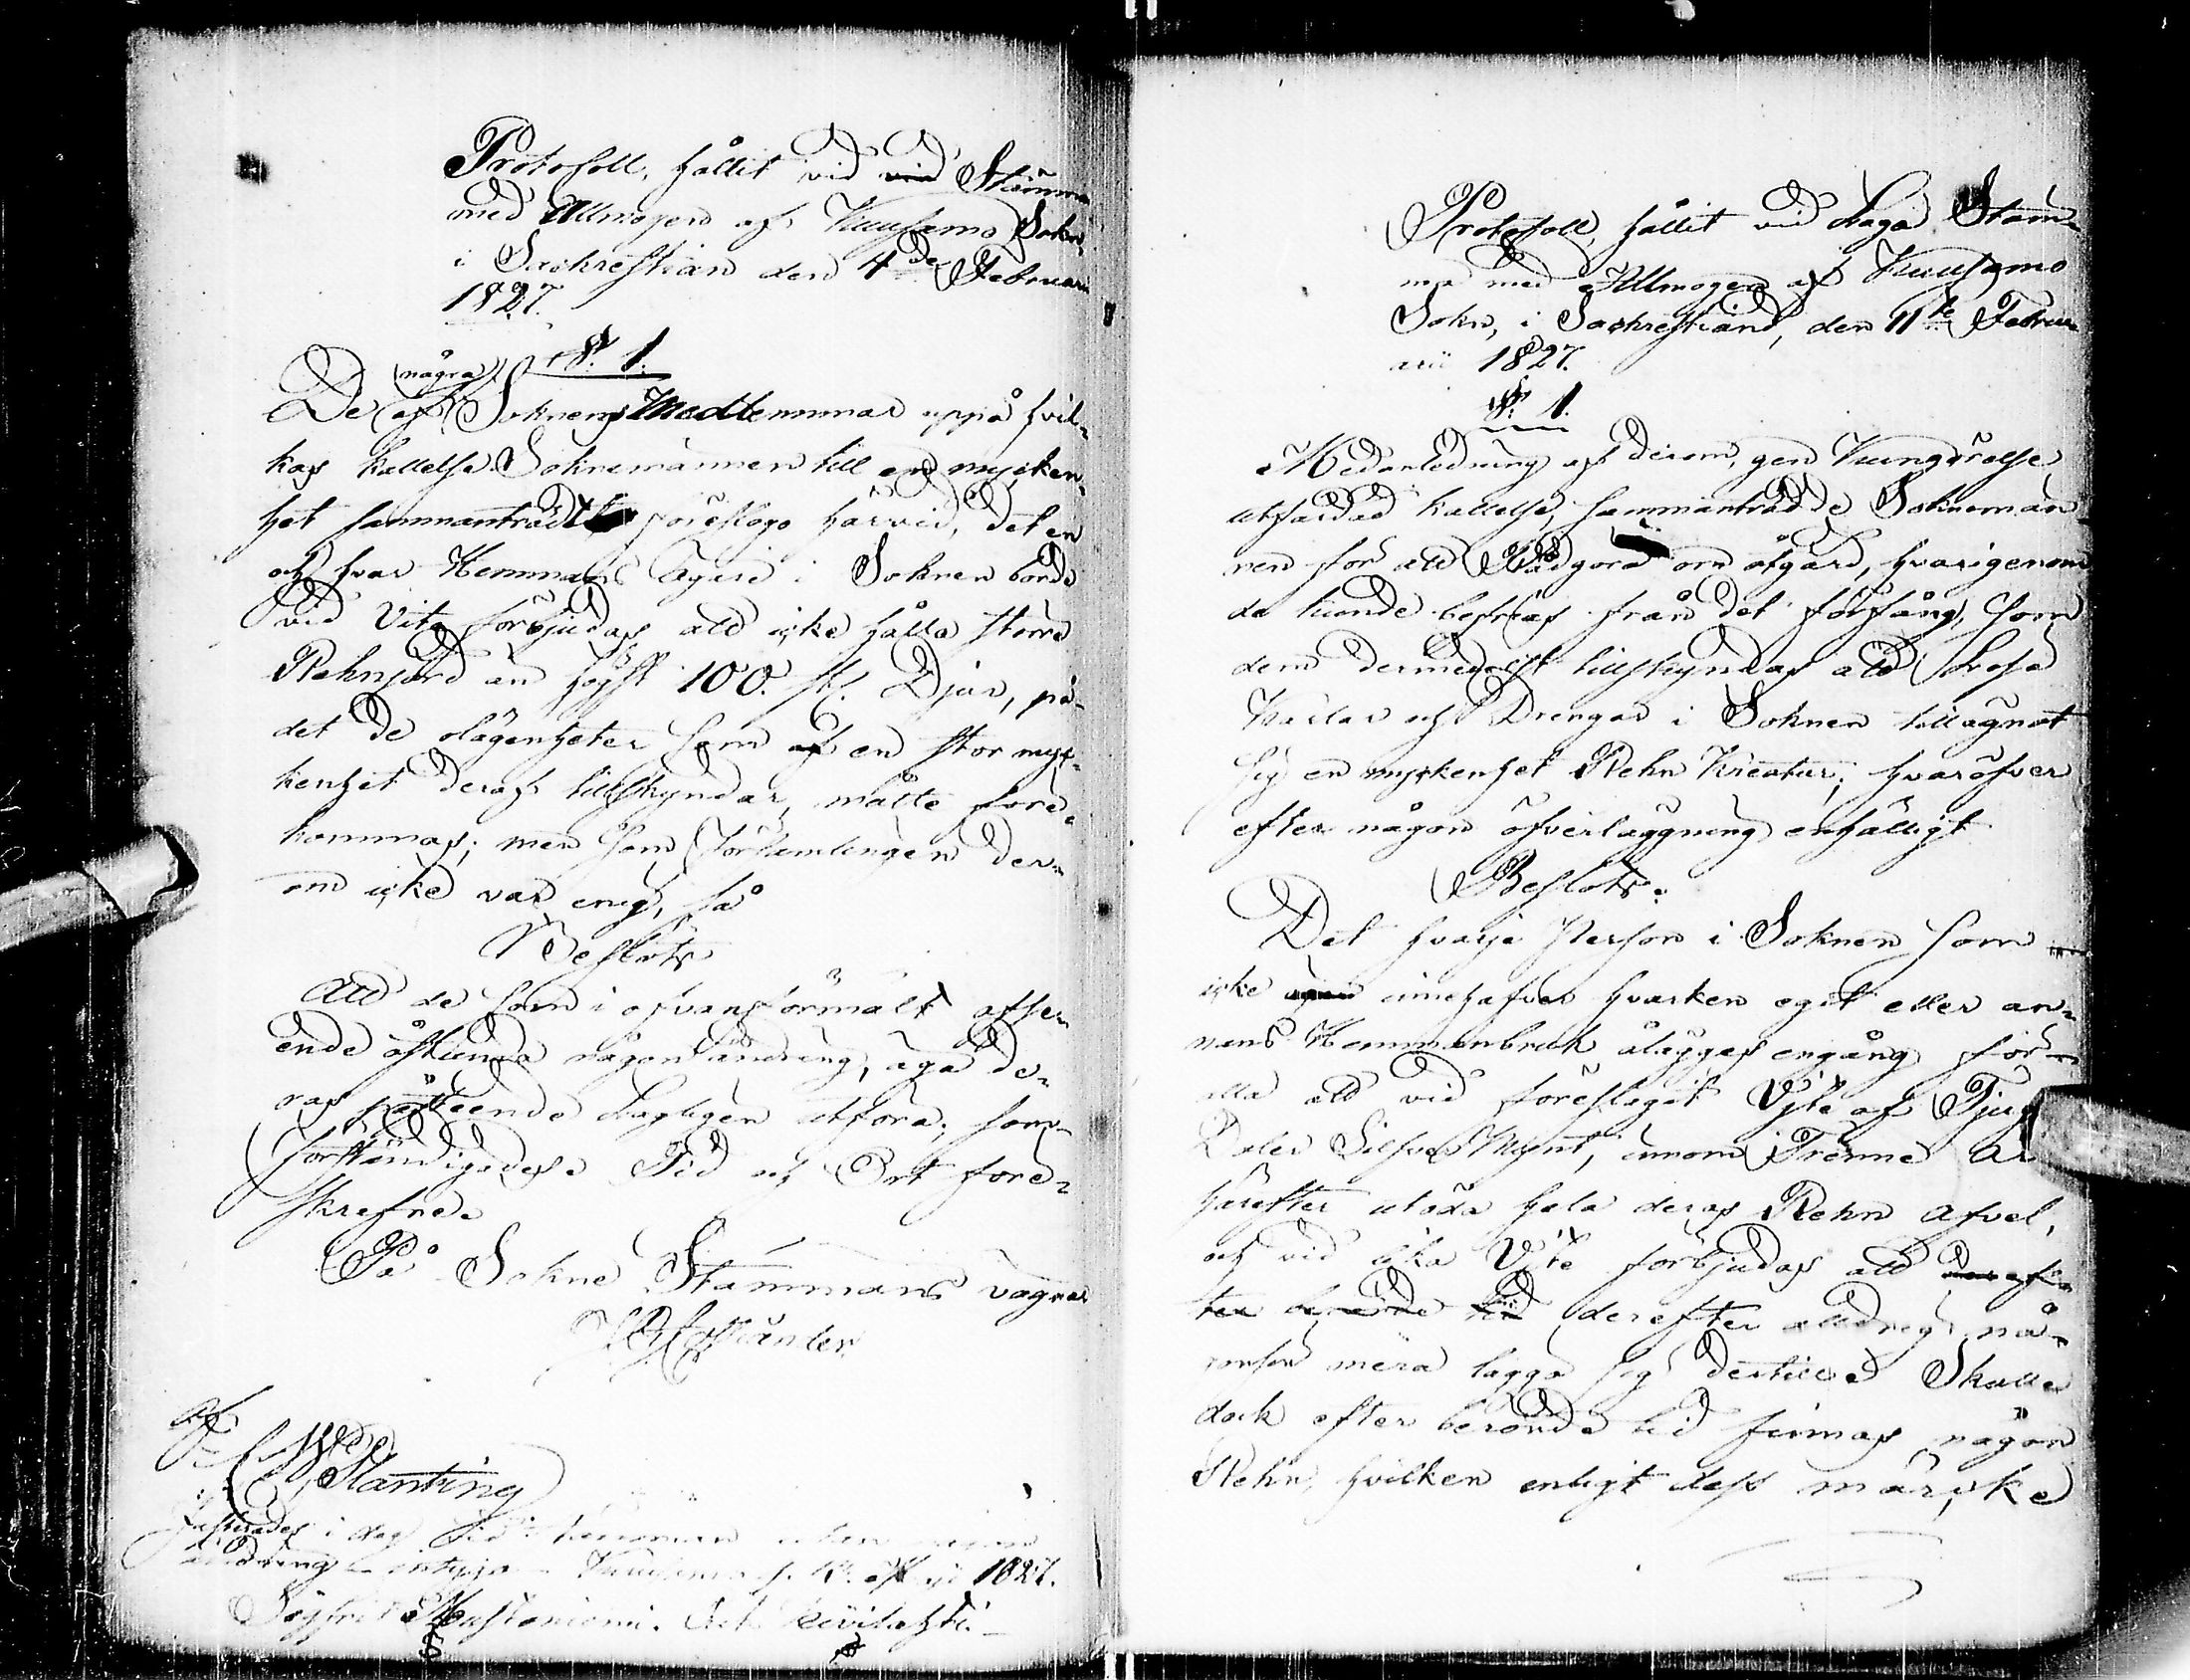 Protokoll, hållit vid vid Stämma
med Allmogen af Kuusamo Sokn
i Sackrestian den 4de Februarii
1827.
§. 1.
De några af Soknens Medlemmar uppå hvil-
kas kallelse Soknemännen till en mycken-
het sammanträdt föreslogo härvid, det en
och hvar Hemmans Ägare i Soknen borde
vid Vite förbjudas att icke hålla större
Rehnhjord än högst 100. st. Djur, på
det de olägenheter som af en stor myc-
kenhet deraf tillskyndas, måtte före-
kommas; men som Församlingen der-
om icke var enig, så
Beslöts
Att de som i ofvanförmält afse-
ende åstunda någon ändring, äga de-
ras påstående Lagligen utföra; som
förständigades. Tid och Ort före-
skrefne.
På Sokne Stämmans vägnar
Planting
Justerades i dag
ändring 1827.
Sigfrid Mustaniemi.
Protokoll, hållit vid Laga Stäm-
ma med Allmogen af Kuusamo
Sokn, i Sackrestian, den 11te Febru-
arii 1827.
§. 1.
Med anledning af derom, gen Kungörelse
utfärdad kallelse, sammanträdde Soknemän-
nen för att Rådgöra om åtgärd, hvarigenom
de kunde befrias från det förfång, som
dem dermedelst tillskyndas att Lösa
Karlar och Drengar i Soknen tillägnat
sig en myckenhet Rehn Kreatur; hvaröfver
efter någon öfverläggning enhälligt
Beslöts:
Det hvarje Person i Soknen som
icke innehafver hvarken eget eller an-
nans Hemmanbruk ålägges engång för
alla att vid föreslagit Vite af Tjug
Daler Silfver Mynt, innom Trenne År
härefter utöda hela deras Rehn Afvel,
och vid lika Vite förbjudas att
derefter alldrig nå-
gonsin mera lägga sig dertill. Skulle
dock efter berörde tid finnas någon
Rehn, hvilken enligt dess märcke